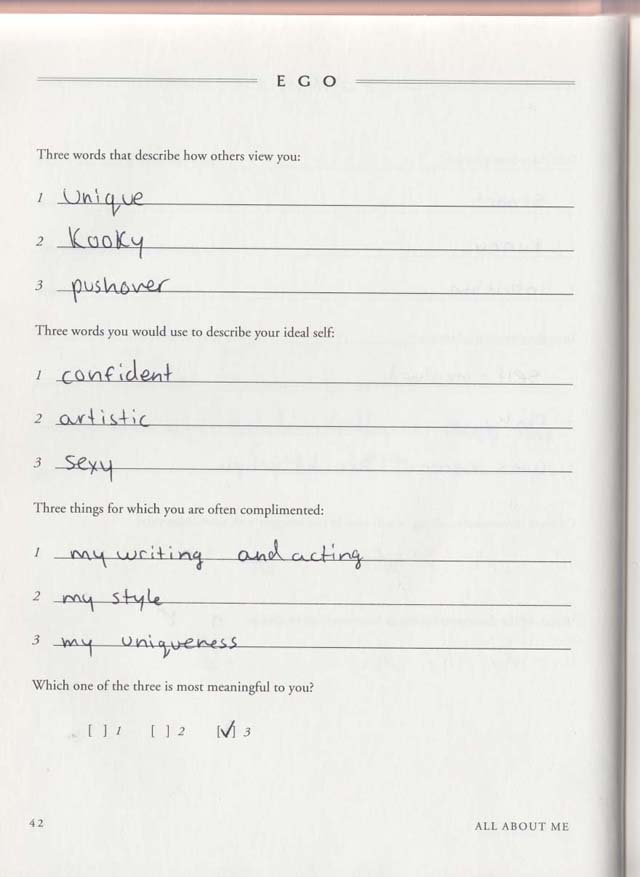 EGO
Three words that describe how others view you:
1 Unique
2 Kooky
3 pushover
Three words you would use to describe your ideal self:
1 confident
2 artistic
3 sexy
Three things for which you are often complimented:
1 my writing and acting
2 my style
3 my uniqueness
Which one of the three is most meaningful to you?
[ ] 1 [ ] 2 [✓] 3
42 ALL ABOUT ME